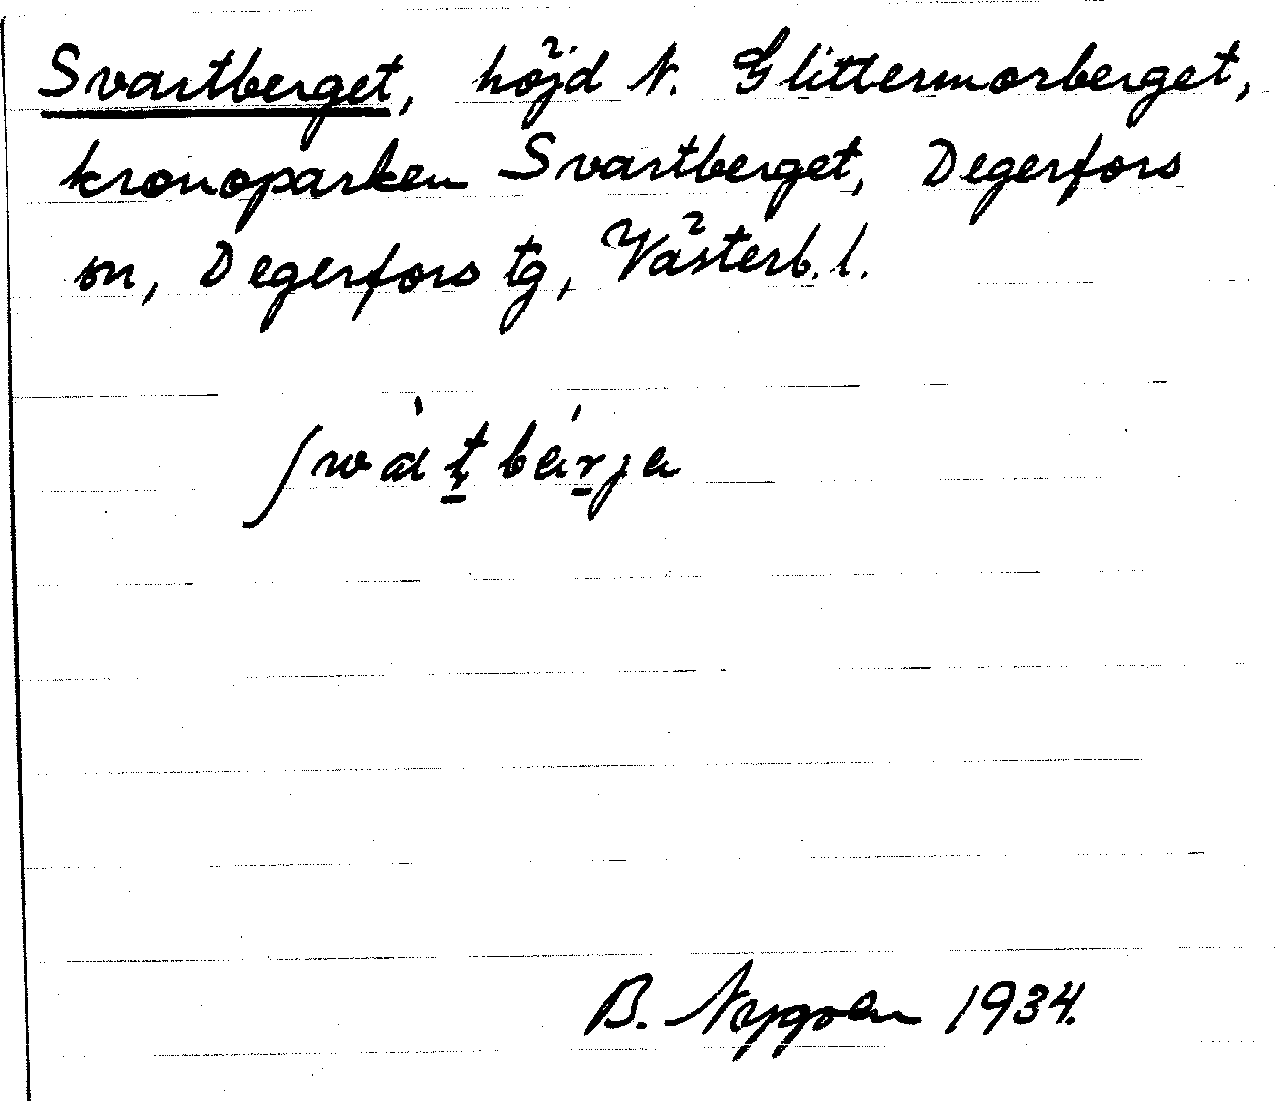 Svartberget, höjd N. Glittermorberget,
kronoparken Svartberget, Degerfors
sn, Degerfors tg, Västerb. l.
ʃwàt̠bár̠ja
B. Nygren 1934.